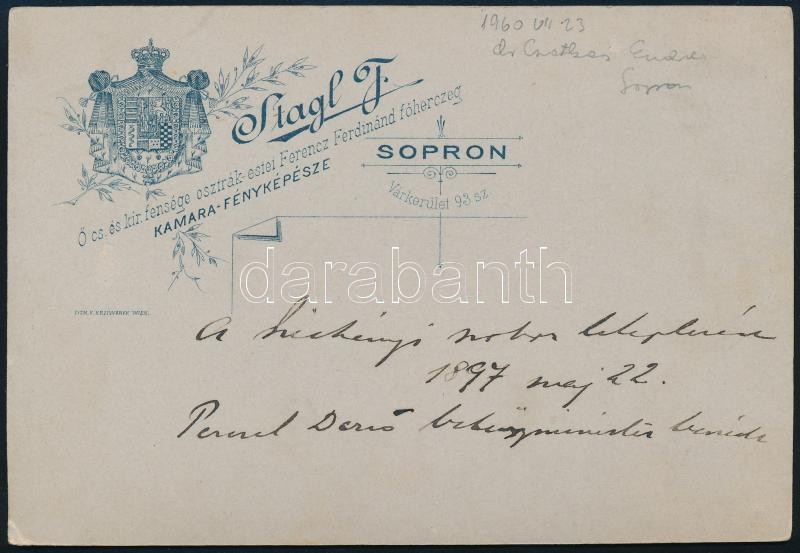 1960 VII. 23
dr Csatkai Endre
Sopron
Stagl F.
Ő cs. és kir. fensége osztrák-estei Ferencz Ferdinánd főherczeg
KAMARA-FÉNYKÉPÉSZE
SOPRON
Várkerület 93. sz.
darabanth
LITH. K. KRZIWANEK WIEN.
A Széchényi szobor leleplezése
1897 maj 22.
Perczel Dezső belügyminister beszéde